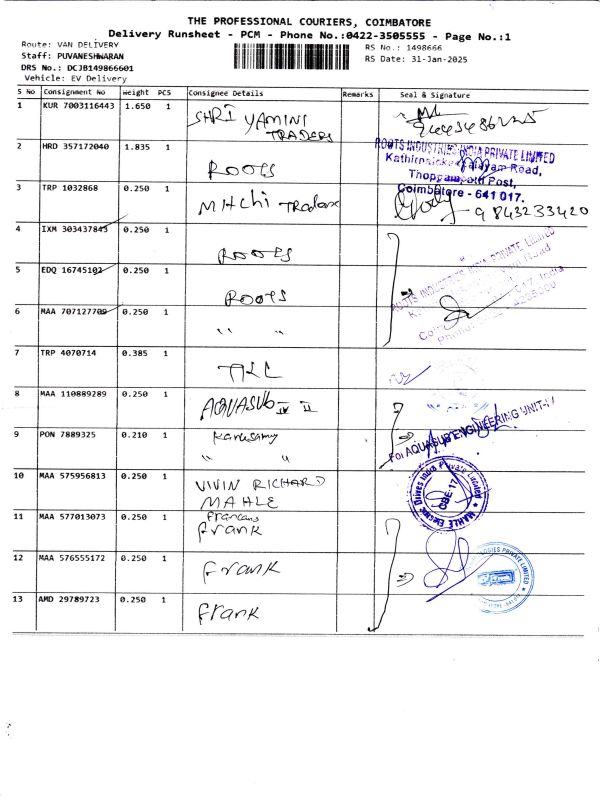 THE PROFESSIONAL COURIERS, COIMBATORE
Delivery Runsheet - PCM - Phone No.:0422-3505555 - Page No.:1
Route: VAN DELIVERY
RS No.: 1498666
Staff: PUVANESHWARAN
RS Date: 31-Jan-2025
DRS No.: DCJB149866601
Vehicle: EV Delivery
S No Consignment No Weight PCS Consignee Details Remarks Seal & Signature
1 KUR 7003116443 1.650 1 SHRI YAMINI TRADERS
2 HRD 357172040 1.835 1 ROOTS
ROOTS INDUSTRIES INDIA PRIVATE LIMITED
Thoppampatti Post,
Coimbatore - 641 017.
3 TRP 1032868 0.250 1 MHchi Traders 9843233420
4 IXM 303437843 0.250 1 ROOTS
ROOTS INDUSTRIES INDIA PRIVATE LIMITED
5 EDQ 16745102 0.250 1 ROOTS
6 MAA 707127709 0.250 1 " "
7 TRP 4070714 0.385 1
8 MAA 110889289 0.250 1 AQUASUB IV II
For AQUASUB ENGINEERING UNIT-IV
9 PON 7889325 0.210 1 " "
10 MAA 575956813 0.250 1 VIVIN RICHARD
MAHLE
MAHLE Electric Drives India Private Limited
CBE-17
11 MAA 577013073 0.250 1 Frank
12 MAA 576555172 0.250 1 Frank
13 AMD 29789723 0.250 1 Frank